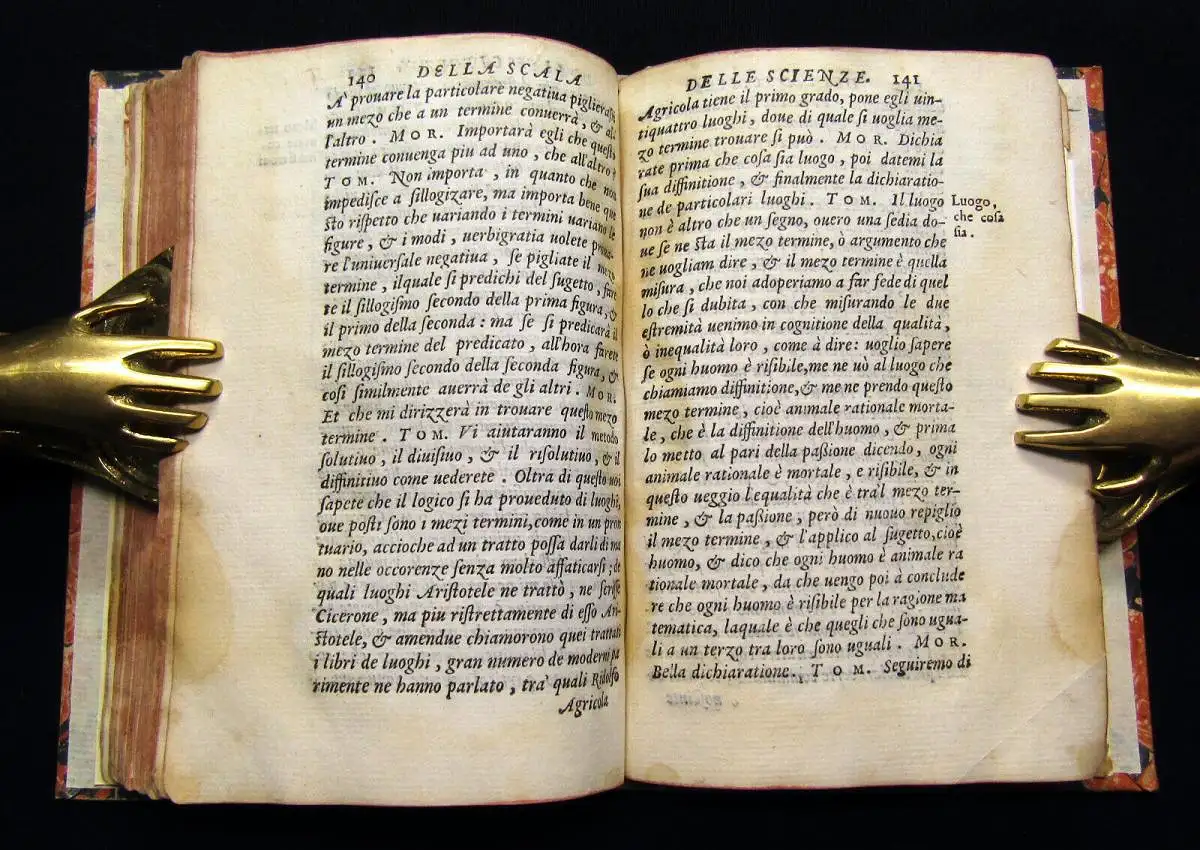 140 DELLA SCALA
A' prouare la particolare negatiua piglierassi
un mezo che a un termine conuerrà, & al
l'altro . MOR. Importarà egli che questo
termine conuenga piu ad uno , che all'altro ?
TOM. Non importa , in quanto che non
impedisce a sillogizare, ma importa bene que
sto rispetto che uariando i termini uariano le
figure , & i modi , uerbigratia uolete proua-
re l'uniuersale negatiua , se pigliate il mezo
termine , ilquale si predichi del sugetto , fare
te il sillogismo secondo della prima figura, &
il primo della seconda : ma se si predicarà il
mezo termine del predicato , all'hora farete
il sillogismo secondo della seconda figura, &
cosi similmente auerrà de gli altri . MOR.
Et che mi dirizzerà in trouare questo mezo
termine . TOM. Vi aiutaranno il metodo
solutiuo , il diuisiuo , & il risolutiuo , & il
diffinitiuo come uederete . Oltra di questo uoi
sapete che il logico si ha proueduto di luoghi,
oue posti sono i mezi termini, come in un pron
tuario, accioche ad un tratto possa darli di ma
no nelle occorenze senza molto affaticarsi ; de
quali luoghi Aristotele ne trattò , ne scrisse
Cicerone , ma piu ristrettamente di esso Ari-
stotele, & amendue chiamorono quei trattati
i libri de luoghi , gran numero de moderni pa
rimente ne hanno parlato , trà quali Ridolfo
Agricola
DELLE SCIENZE. 141
Agricola tiene il primo grado, pone egli uin-
tiquattro luoghi , doue di quale si uoglia me-
zo termine trouare si può . MOR. Dichia
rate prima che cosa sia luogo , poi datemi la
sua diffinitione , & finalmente la dichiaratio-
ne de particolari luoghi . TOM. Il luogo
non è altro che un segno, ouero una sedia do-
ue se ne sta il mezo termine, ò argumento che
ne uogliam dire , & il mezo termine è quella
misura , che noi adoperiamo a far fede di quel
lo che si dubita , con che misurando le due
estremità uenimo in cognitione della qualità,
ò inequalità loro , come à dire: uoglio sapere
se ogni huomo è risibile, me ne uò al luogo che
chiamiamo diffinitione, & me ne prendo questo
mezo termine , cioè animale rationale morta-
le , che è la diffinitione dell'huomo , & prima
lo metto al pari della passione dicendo , ogni
animale rationale è mortale , e risibile, & in
questo ueggio l'equalità che è tra'l mezo ter-
mine , & la passione , però di nuouo repiglio
il mezo termine , & l'applico al sugetto, cioè
huomo, & dico che ogni huomo è animale ra
tionale mortale , da che uengo poi à conclude
re che ogni huomo è risibile per la ragione ma
tematica, laquale è che quegli che sono ugua-
li a un terzo tra loro sono uguali . MOR.
Bella dichiaratione . TOM. Seguiremo di
Luogo,
che cosa
sia.